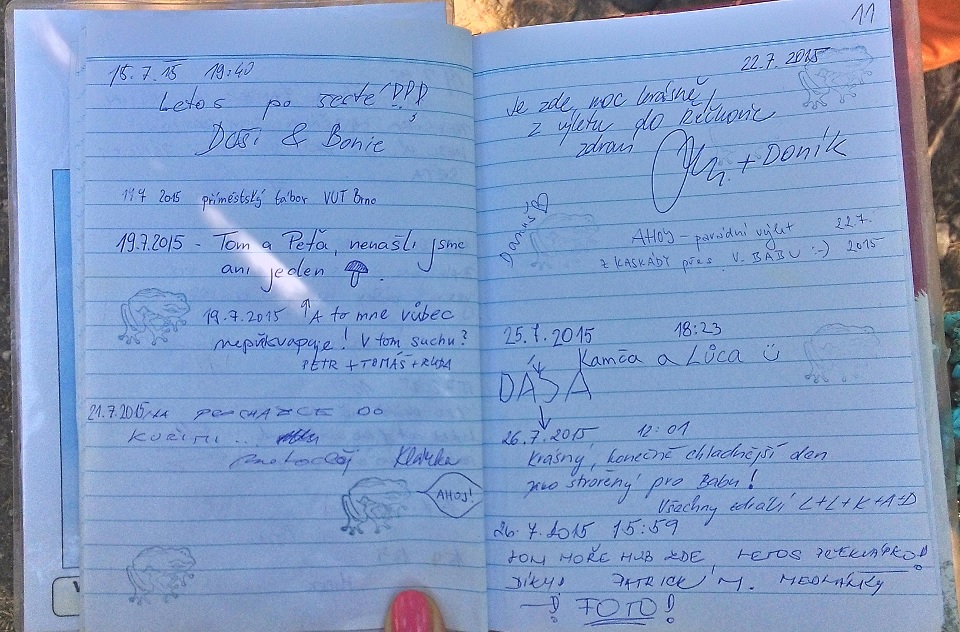 15.7.15 19:40
Letos po šesté!!!
Daši & Bonie
2015 příměstský tábor VUT Brno
19.7.2015 - Tom a Peťa, nenašli jsme
ani jeden
19.7.2015 ↑ A to mne vůbec
nepřekvapuje! V tom suchu?
PETR + TOMÁŠ +
21.7.2015 NA PROCHÁZCE DO
KUŘIMI...
Klárka
AHOJ!
11
22.7.2015
Je zde moc krásně,
z výletu do Řečkovic
zdraví
+ Doník
AHOJ - parádní výlet 22.7.
Z KASKÁDY přes V. BABU :-) 2015
25.7.2015 18:23
Kamča a Lůca
DÁŠA
26.7.2015, 12:01
Krásný, konečně chladnější den
jako stvořený pro Babu!
Všechny zdraví L+L+K+A+D
26.7.2015 15:59
TOM MOŘE HUB ZDE, LETOS
DÍKY! PATRICK M. MEDLÁNKY
FOTO!